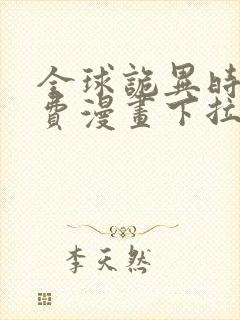 全球詭異時
費漫畫下拉
李天然